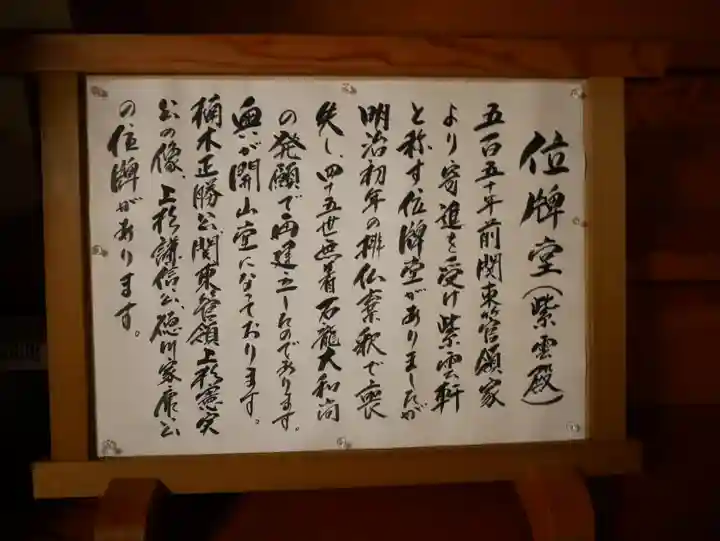 位牌堂（紫雲殿）
五百五十年前関東管領家
より寄進を受け紫雲軒
と称す位牌堂がありましたが
明治初年の排仏棄釈で喪
失し、四十五世無着石龍大和尚
の発願で再建立したのであります。
奥が開山堂になっております。
楠木正勝公、関東管領上杉憲実
公の像、上杉謙信公、徳川家康公
の位牌があります。